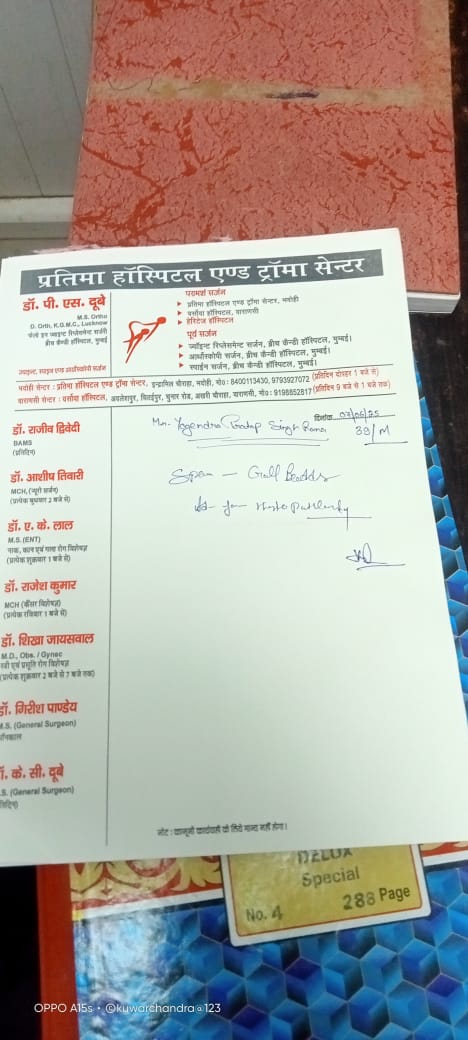 प्रतिमा हॉस्पिटल एण्ड ट्रॉमा सेन्टर
डॉ. पी. एस. दूबे
M.S. Ortho
D. Orth, K.G.M.C., Lucknow
ब्रीच कैन्डी हॉस्पिटल, मुम्बई
परामर्श सर्जन
प्रतिमा हॉस्पिटल एण्ड ट्रॉमा सेन्टर, भदोही
वर्साया हॉस्पिटल, वाराणसी
हेरिटेज हॉस्पिटल
पूर्व सर्जन
ज्वॉइन्ट रिप्लेसमेन्ट सर्जन, ब्रीच कैन्डी हॉस्पिटल, मुम्बई।
आर्थोस्कोपी सर्जन, ब्रीच कैन्डी हॉस्पिटल, मुम्बई।
स्पाईन सर्जन, ब्रीच कैन्डी हॉस्पिटल, मुम्बई।
भदोही सेन्टर : प्रतिमा हॉस्पिटल एण्ड ट्रॉमा सेन्टर, इन्द्रामिल चौराहा, भदोही, मो0: 8400113430, 9793927072 (प्रतिदिन दोपहर 1 बजे से)
वाराणसी सेन्टर : वर्साया हॉस्पिटल, अवलेशपुर, चितईपुर, चुनार रोड, अखरी चौराहा, वाराणसी, मो0: 9198852817 (प्रतिदिन 9 बजे से 1 बजे तक)
दिनांक 07/06/25
Mr. Yogendra Pratap Singh
39/M
डॉ. राजीव द्विवेदी
BAMS
(प्रतिदिन)
डॉ. आशीष तिवारी
MCH, (न्यूरो सर्जन)
(प्रत्येक बुधवार 2 बजे से)
डॉ. ए. के. लाल
M.S. (ENT)
नाक, कान एवं गला रोग विशेषज्ञ
(प्रत्येक शुक्रवार 1 बजे से)
डॉ. राजेश कुमार
MCH (कैंसर विशेषज्ञ)
(प्रत्येक रविवार 1 बजे से)
डॉ. शिखा जायसवाल
M.D., Obs. / Gynec
स्त्री एवं प्रसूति रोग विशेषज्ञ
(प्रत्येक शुक्रवार 2 बजे से 7 बजे तक)
डॉ. गिरीश पाण्डेय
M.S. (General Surgeon)
के. सी. दूबे
(General Surgeon)
नोट : कानूनी कार्यवाही के लिये मान्य नहीं होगा।
DELUX
Special
No. 4
288 Page
OPPO A15s · ©kuwarchandra@123